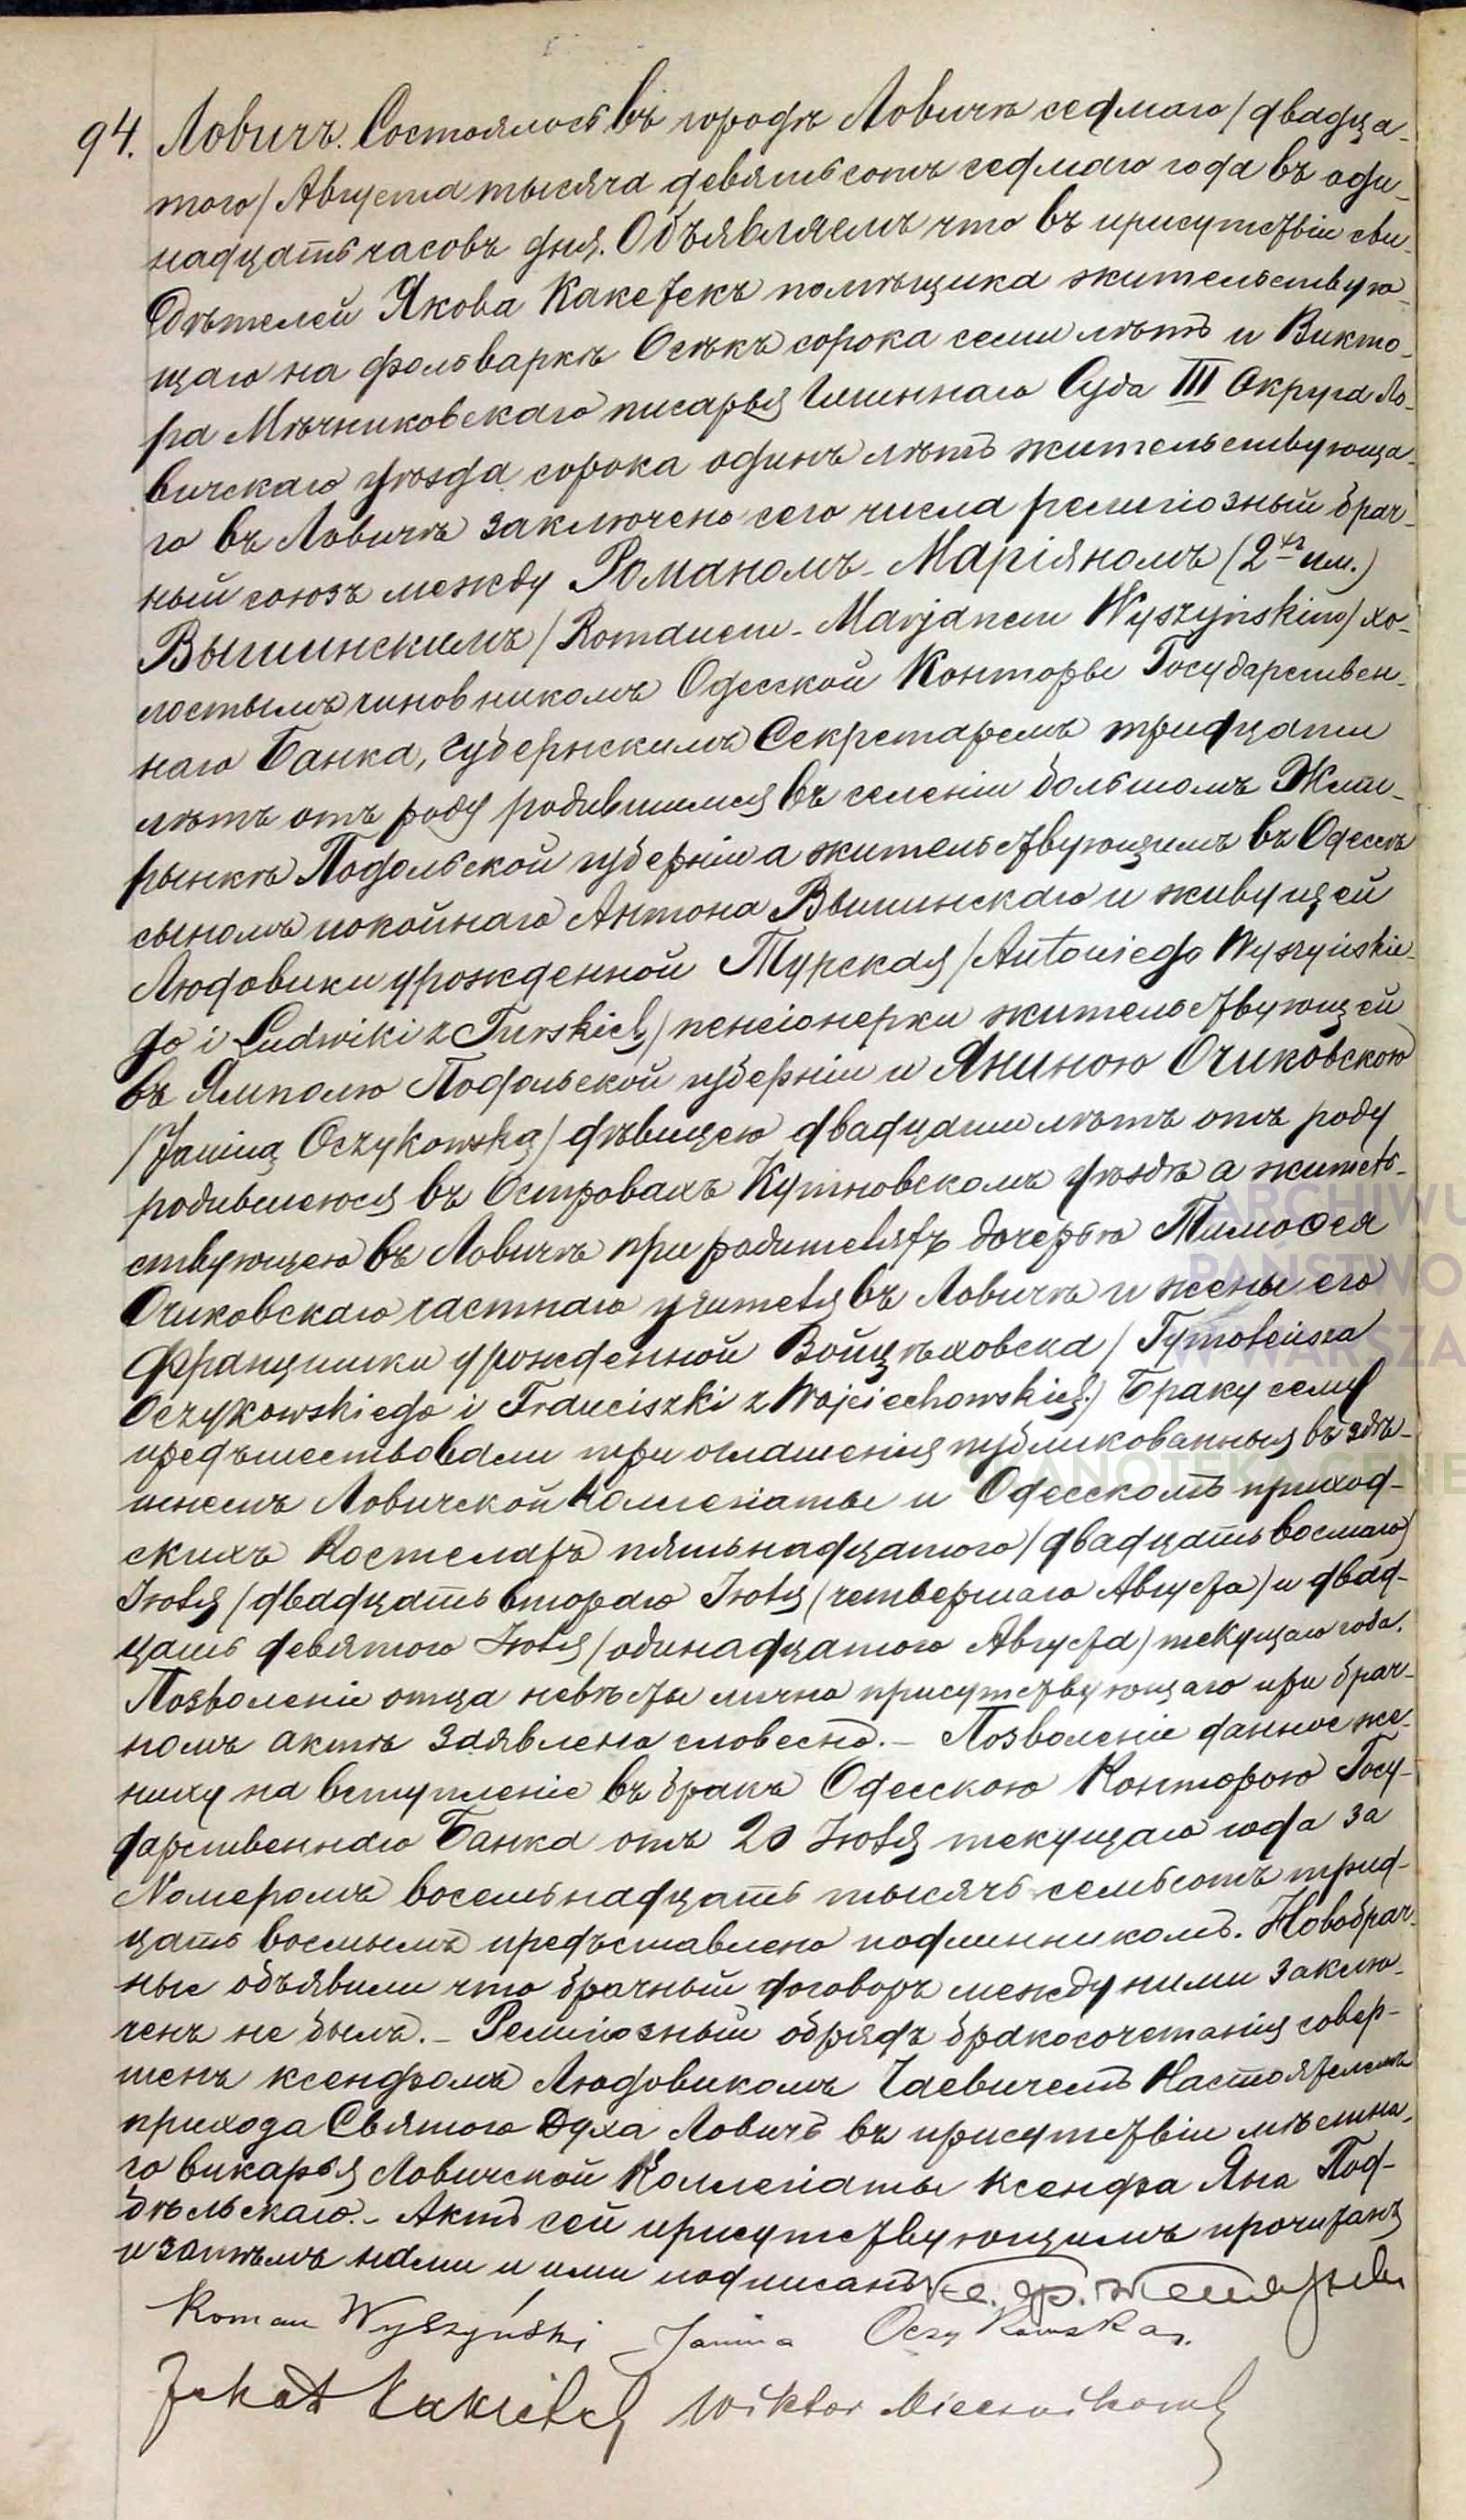 94. Ловичъ. Состоялось въ городѣ Ловичѣ седмаго / двадца-
таго / Августа тысяча девятьсотъ седмаго года въ оди-
надцать часовъ дня. Объявляемъ что въ присутствіи сви-
дѣтелей Якова Какетекъ помѣщика жительствую-
щаго на фольваркѣ Осѣкъ сорока семи лѣтъ и Викто-
ра Мѣчниковскаго писарья Гминнаго Суда III Округа Ло-
вичскаго уѣзда сорока одинъ лѣтъ жительствующа-
го въ Ловичѣ заключено сего числа религіозный брач-
ный союзъ между Романомъ-Маріяномъ (2 хъ им.)
Вышинскимъ / Romanem-Marjanem Wyszyńskim / хо-
лостымъ чиновникомъ Одесской Конторы Государствен-
наго Банка, Губернскимъ Секретаремъ тридцати
лѣтъ отъ роду родившимся въ селеніи большомъ Жмы-
рынкѣ Подольской губерніи а жительствующимъ въ Одессѣ
сыномъ покойнаго Антона Вышинскаго и живущей
Людовики урожденной Турская / Antoniego Wyszyńskie-
go i Ludwiki z Turskich / пенсіонерки жительствующей
въ Ямполю Подольской губерніи и Яниною Очиковскою
/ Janiną Oczykowską / дѣвицею двадцати лѣтъ отъ роду
родившеюся въ Островахъ Кутновскомъ уѣздѣ а житель-
ствующею въ Ловичѣ при родителяхъ дочерью Тимоѳея
Очиковскаго частнаго учителя въ Ловичѣ и жены его
Францишки урожденной Войцѣховска / Tymoteusza
Oczykowskiego i Franciszki z Wojciechowskich.) Браку сему
предъшествовали три оглашенія публикованныя въ здѣ-
шнемъ Ловичской Коллегіаты и Одесскомъ приход-
скихъ Костелахъ пятьнадцатого / двадцать восмаго /
Іюля / двадцать второго Іюля / четвертаго Августа) и двад-
цать девятого Іюля / одинадцатого Августа) текущаго года.
Позволеніе отца невѣсты лично присутствующаго при брач-
номъ актѣ заявлено словесно. - Позволеніе данное же-
ниху на вступленіе въ бракъ Одесскою Конторою Госу-
дарственнаго Банка отъ 20 Іюля текущаго года за
Номеромъ восемьнадцать тысячъ семьсотъ трид-
цать восмымъ предъставлено подлинникомъ. Новобрач-
ные объявили что брачный договоръ между ними заклю-
ченъ не былъ. - Религіозный обрядъ бракосочетанія совер-
шенъ ксендзомъ Людовикомъ Гаевичемъ Настоятелемъ
прихода Святого Духа Ловичъ въ присутствіи мѣстна-
го викарья Ловичской Коллегіаты ксендза Яна Под-
бѣльскаго. - Актъ сей присутствующимъ прочитанъ
и затѣмъ нами и ими подписанъ
Roman Wyszyński Janina Oczykowska.
Wiktor Miecznikowski
ARCHIWU
PAŃSTWO
W WARSZA
SKANOTEKA GENE